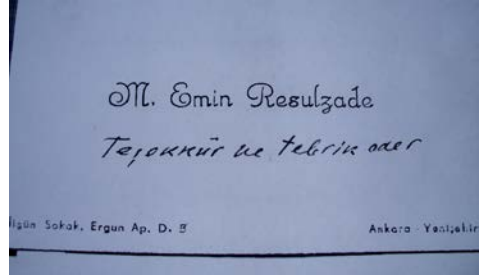 M. Emin Resulzade
Teşekkür ve tebrik eder
Sokak, Ergun Ap. D.
Ankara - Yenişehir